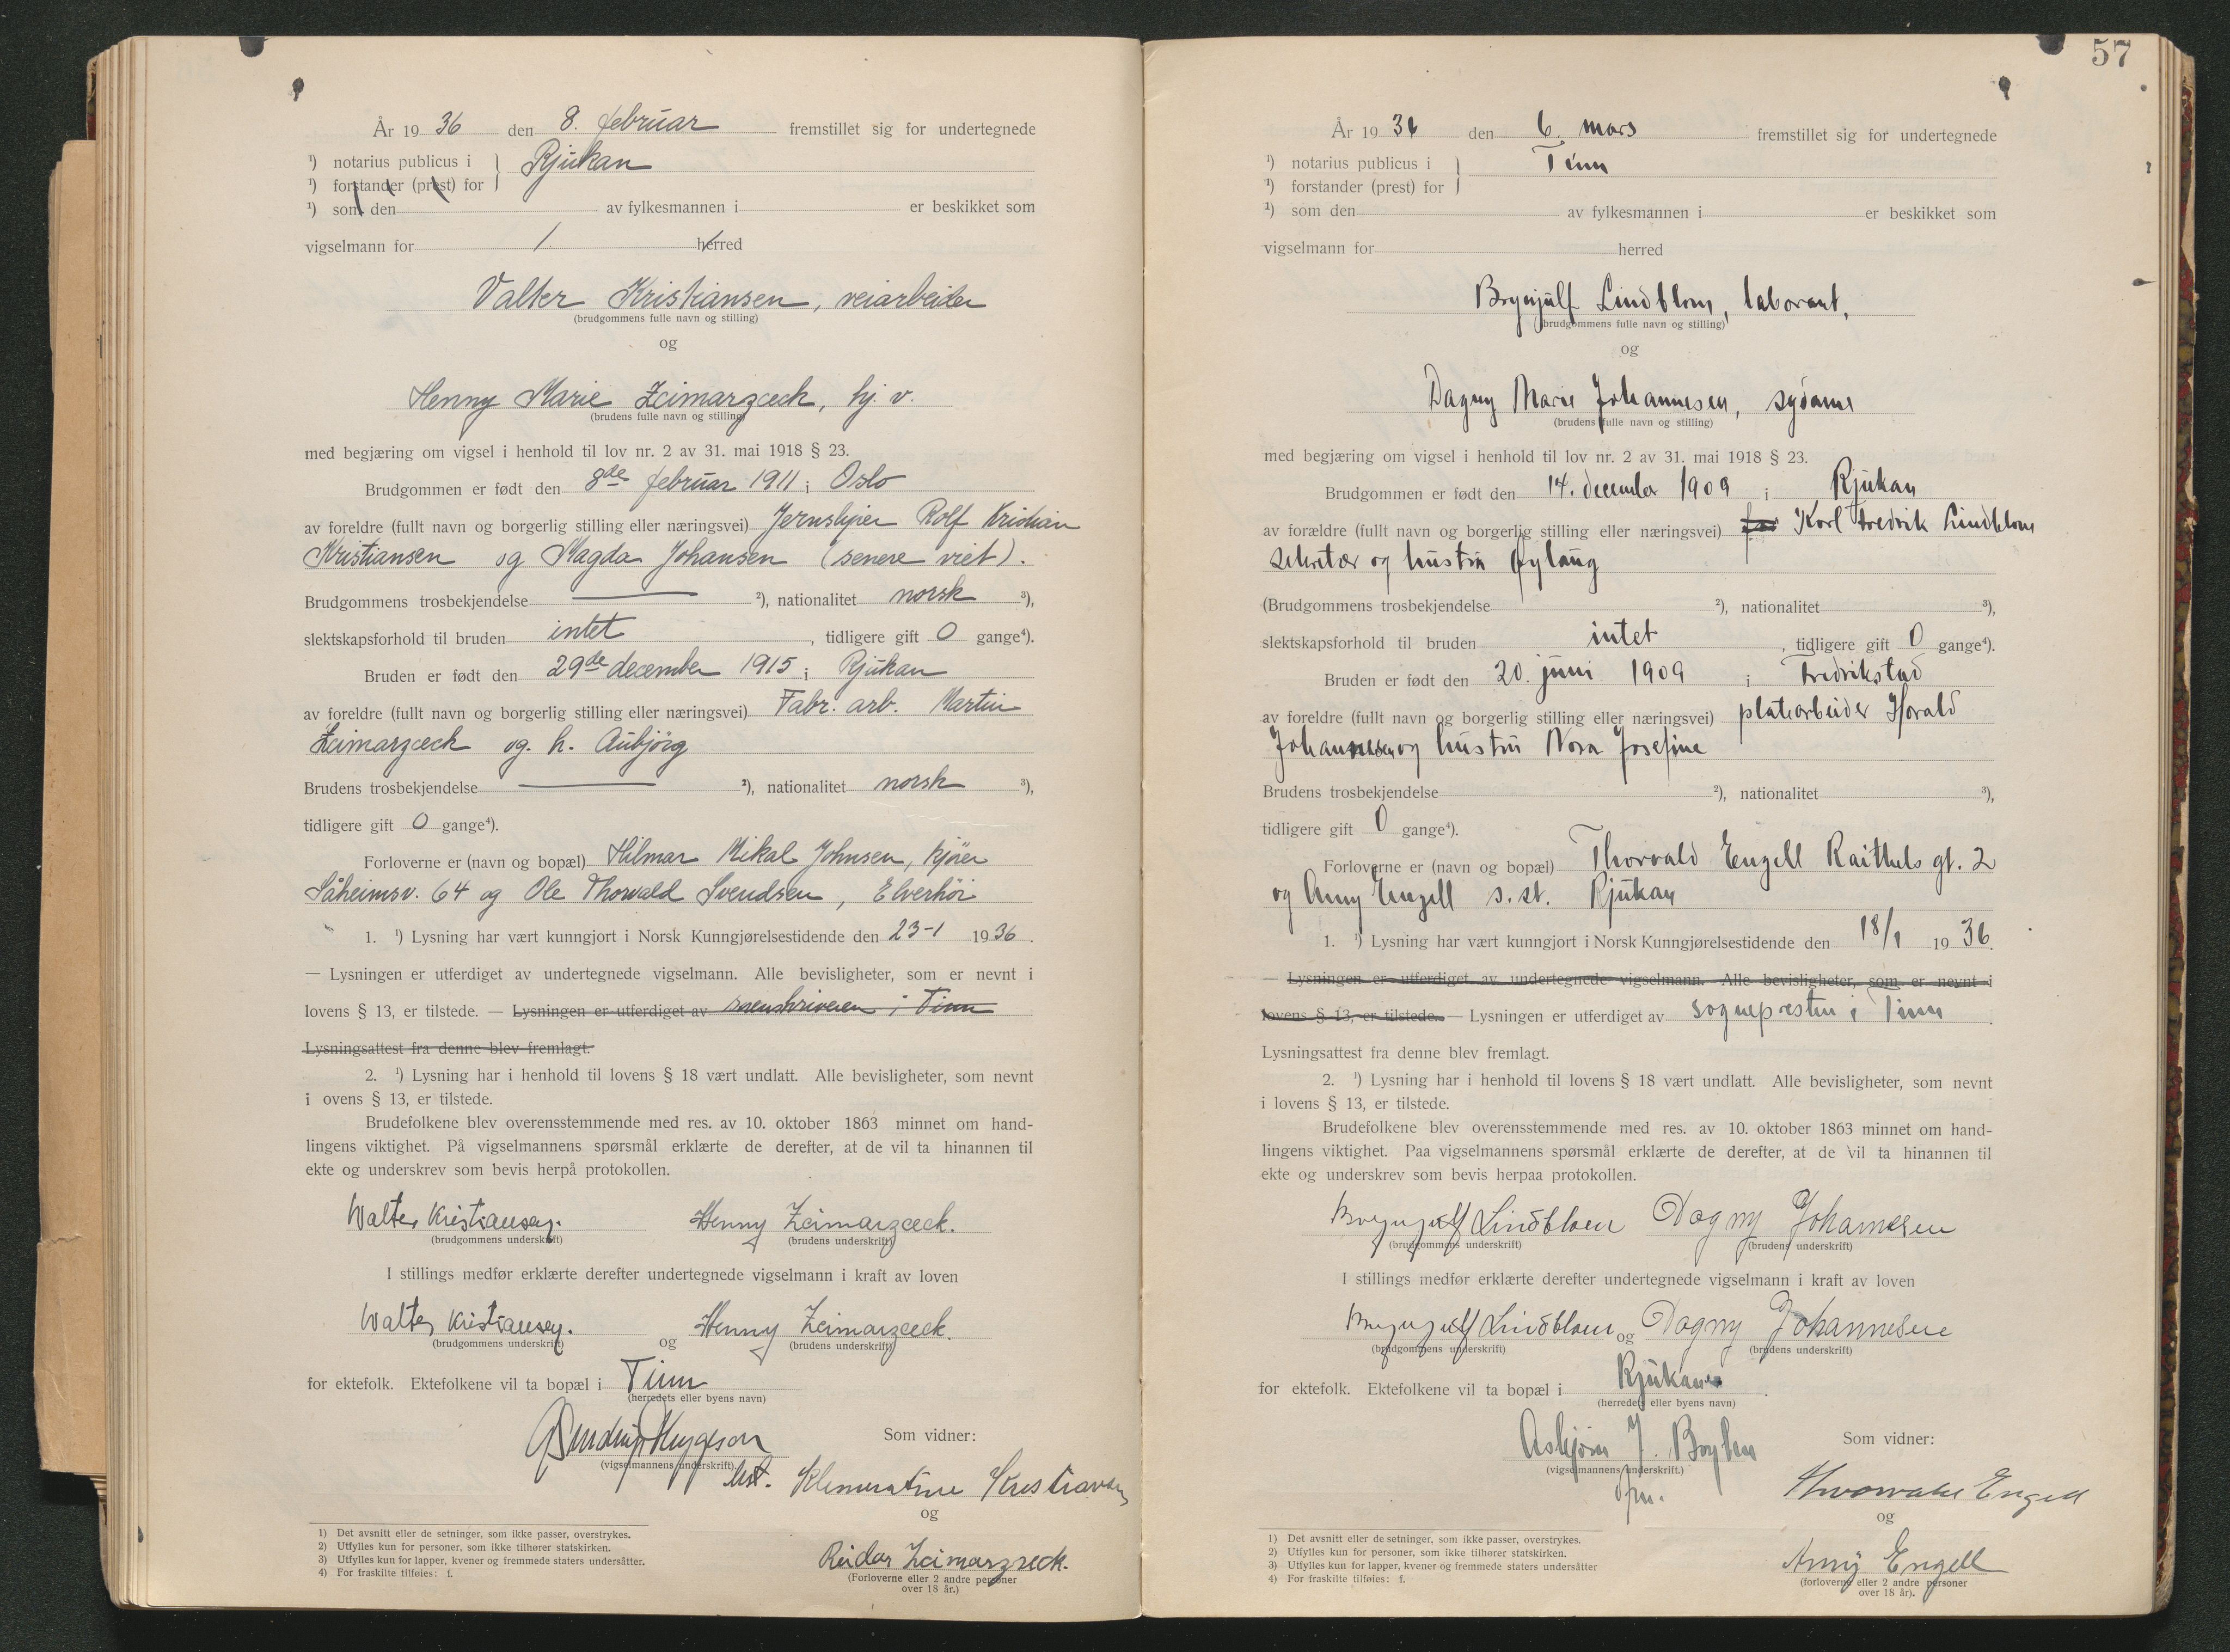 År 1936 den 8. februar fremstillet sig for undertegnede
¹) notarius publicus i Rjukan
¹) forstander (prest) for
¹) som den av fylkesmannen i er beskikket som
vigselmann for herred
Valter Kristiansen, veiarbeider
(brudgommens fulle navn og stilling)
og
Henny Marie Zeimarzceck, hj. v.
(brudens fulle navn og stilling)
med begjæring om vigsel i henhold til lov nr. 2 av 31. mai 1918 § 23.
Brudgommen er født den 8de februar 1911 i Oslo
av foreldre (fullt navn og borgerlig stilling eller næringsvei) Jernskjær Rolf Kristian
Kristiansen og Magda Johansen (senere viet).
Brudgommens trosbekjendelse ²), nationalitet norsk ³),
slektskapsforhold til bruden intet, tidligere gift 0 gange⁴).
Bruden er født den 29de december 1915 i Rjukan
av foreldre (fullt navn og borgerlig stilling eller næringsvei) Fabr. arb. Martin
Zeimarzceck og h. Aubjörg
Brudens trosbekjendelse ²), nationalitet norsk ³),
tidligere gift 0 gange⁴).
Forloverne er (navn og bopæl) Hilmar Mikal Johnsen, kjörer
Såheimsv. 64 og Ole Thorvald Svendsen, Elverhöi
1. ¹) Lysning har vært kunngjort i Norsk Kunngjørelsestidende den 23-1 1936.
— Lysningen er utferdiget av undertegnede vigselmann. Alle bevisligheter, som er nevnt i
lovens § 13, er tilstede. — Lysningen er utferdiget av sorenskriveren i Tinn
Lysningsattest fra denne blev fremlagt.
2. ¹) Lysning har i henhold til lovens § 18 vært undlatt. Alle bevisligheter, som nevnt
i ovens § 13, er tilstede.
Brudefolkene blev overensstemmende med res. av 10. oktober 1863 minnet om hand-
lingens viktighet. På vigselmannens spørsmål erklærte de derefter, at de vil ta hinannen til
ekte og underskrev som bevis herpå protokollen.
Walter Kristiansen. Henny Zeimarzceck.
(brudgommens underskrift) (brudens underskrift)
I stillings medfør erklærte derefter undertegnede vigselmann i kraft av loven
Walter Kristiansen. og Henny Zeimarzceck.
(brudgommens underskrift) (brudens underskrift)
for ektefolk. Ektefolkene vil ta bopæl i Tinn
(herredets eller byens navn)
Som vidner:
(vigselmannens underskrift).
Klementine Kristiansen
og
Reidar Zeimarzceck.
(Forloverne eller 2 andre personer
over 18 år.)
1) Det avsnitt eller de setninger, som ikke passer, overstrykes.
2) Utfylles kun for personer, som ikke tilhører statskirken.
3) Utfylles kun for lapper, kvener og fremmede staters undersåtter.
4) For fraskilte tilføies: f.
57
År 1936 den 6. mars fremstillet sig for undertegnede
¹) notarius publicus i Tinn
¹) forstander (prest) for
¹) som den av fylkesmannen i er beskikket som
vigselmann for herred
Brynjulf Lindblom, laborant,
(brudgommens fulle navn og stilling)
og
Dagny Marie Johannesen, sydame
(brudens fulle navn og stilling)
med begjæring om vigsel i henhold til lov nr. 2 av 31. mai 1918 § 23.
Brudgommen er født den 14. december 1909 i Rjukan
av forældre (fullt navn og borgerlig stilling eller næringsvei) Karl Fredrik Lindblom
sekretær og hustru Øylaug
(Brudgommens trosbekjendelse ²), nationalitet ³),
slektskapsforhold til bruden intet, tidligere gift 0 gange⁴).
Bruden er født den 20. juni 1909 i Fredrikstad
av foreldre (fullt navn og borgerlig stilling eller næringsvei) platearbeider Harald
Johannesen og hustru Nora Josefine
Brudens trosbekjendelse ²), nationalitet ³),
tidligere gift 0 gange⁴).
Forloverne er (navn og bopæl) Thorvald Engell Raithels gt. 2
og Anny Engell s. st. Rjukan
1. ¹) Lysning har vært kunngjort i Norsk Kunngjørelsestidende den 18/1 1936.
— Lysningen er utferdiget av undertegnede vigselmann. Alle bevisligheter, som er nevnt i
lovens § 13, er tilstede. — Lysningen er utferdiget av sognepresten i Tinn
Lysningsattest fra denne blev fremlagt.
2. ¹) Lysning har i henhold til lovens § 18 vært undlatt. Alle bevisligheter, som nevnt
i lovens § 13, er tilstede.
Brudefolkene blev overensstemmende med res. av 10. oktober 1863 minnet om hand-
lingens viktighet. Paa vigselmannens spørsmål erklærte de derefter, at de vil ta hinannen til
ekte og underskrev som bevis herpaa protokollen.
Brynjulf Lindblom Dagny Johannesen
(brudgommens underskrift) (brudens underskrift)
I stillings medfør erklærte derefter undertegnede vigselmann i kraft av loven
Brynjulf Lindblom og Dagny Johannesen
(brudgommens underskrift) (brudens underskrift)
for ektefolk. Ektefolkene vil ta bopæl i Rjukan.
(herredets eller byens navn)
Asbjørn J. Bryhn Som vidner:
(vigselmannens underskrift.)
fm.
Thorvald Engell
og
Anny Engell
(forloverne eller 2 andre personer
over 18 år).
1) Det avsnitt eller de setninger, som ikke passer, overstrykes.
2) Utfylles kun for personer, som ikke tilhører statskirken.
3) Utfylles kun for lapper, kvener og fremmede staters undersåtter
4) For fraskilte tilføies: f.